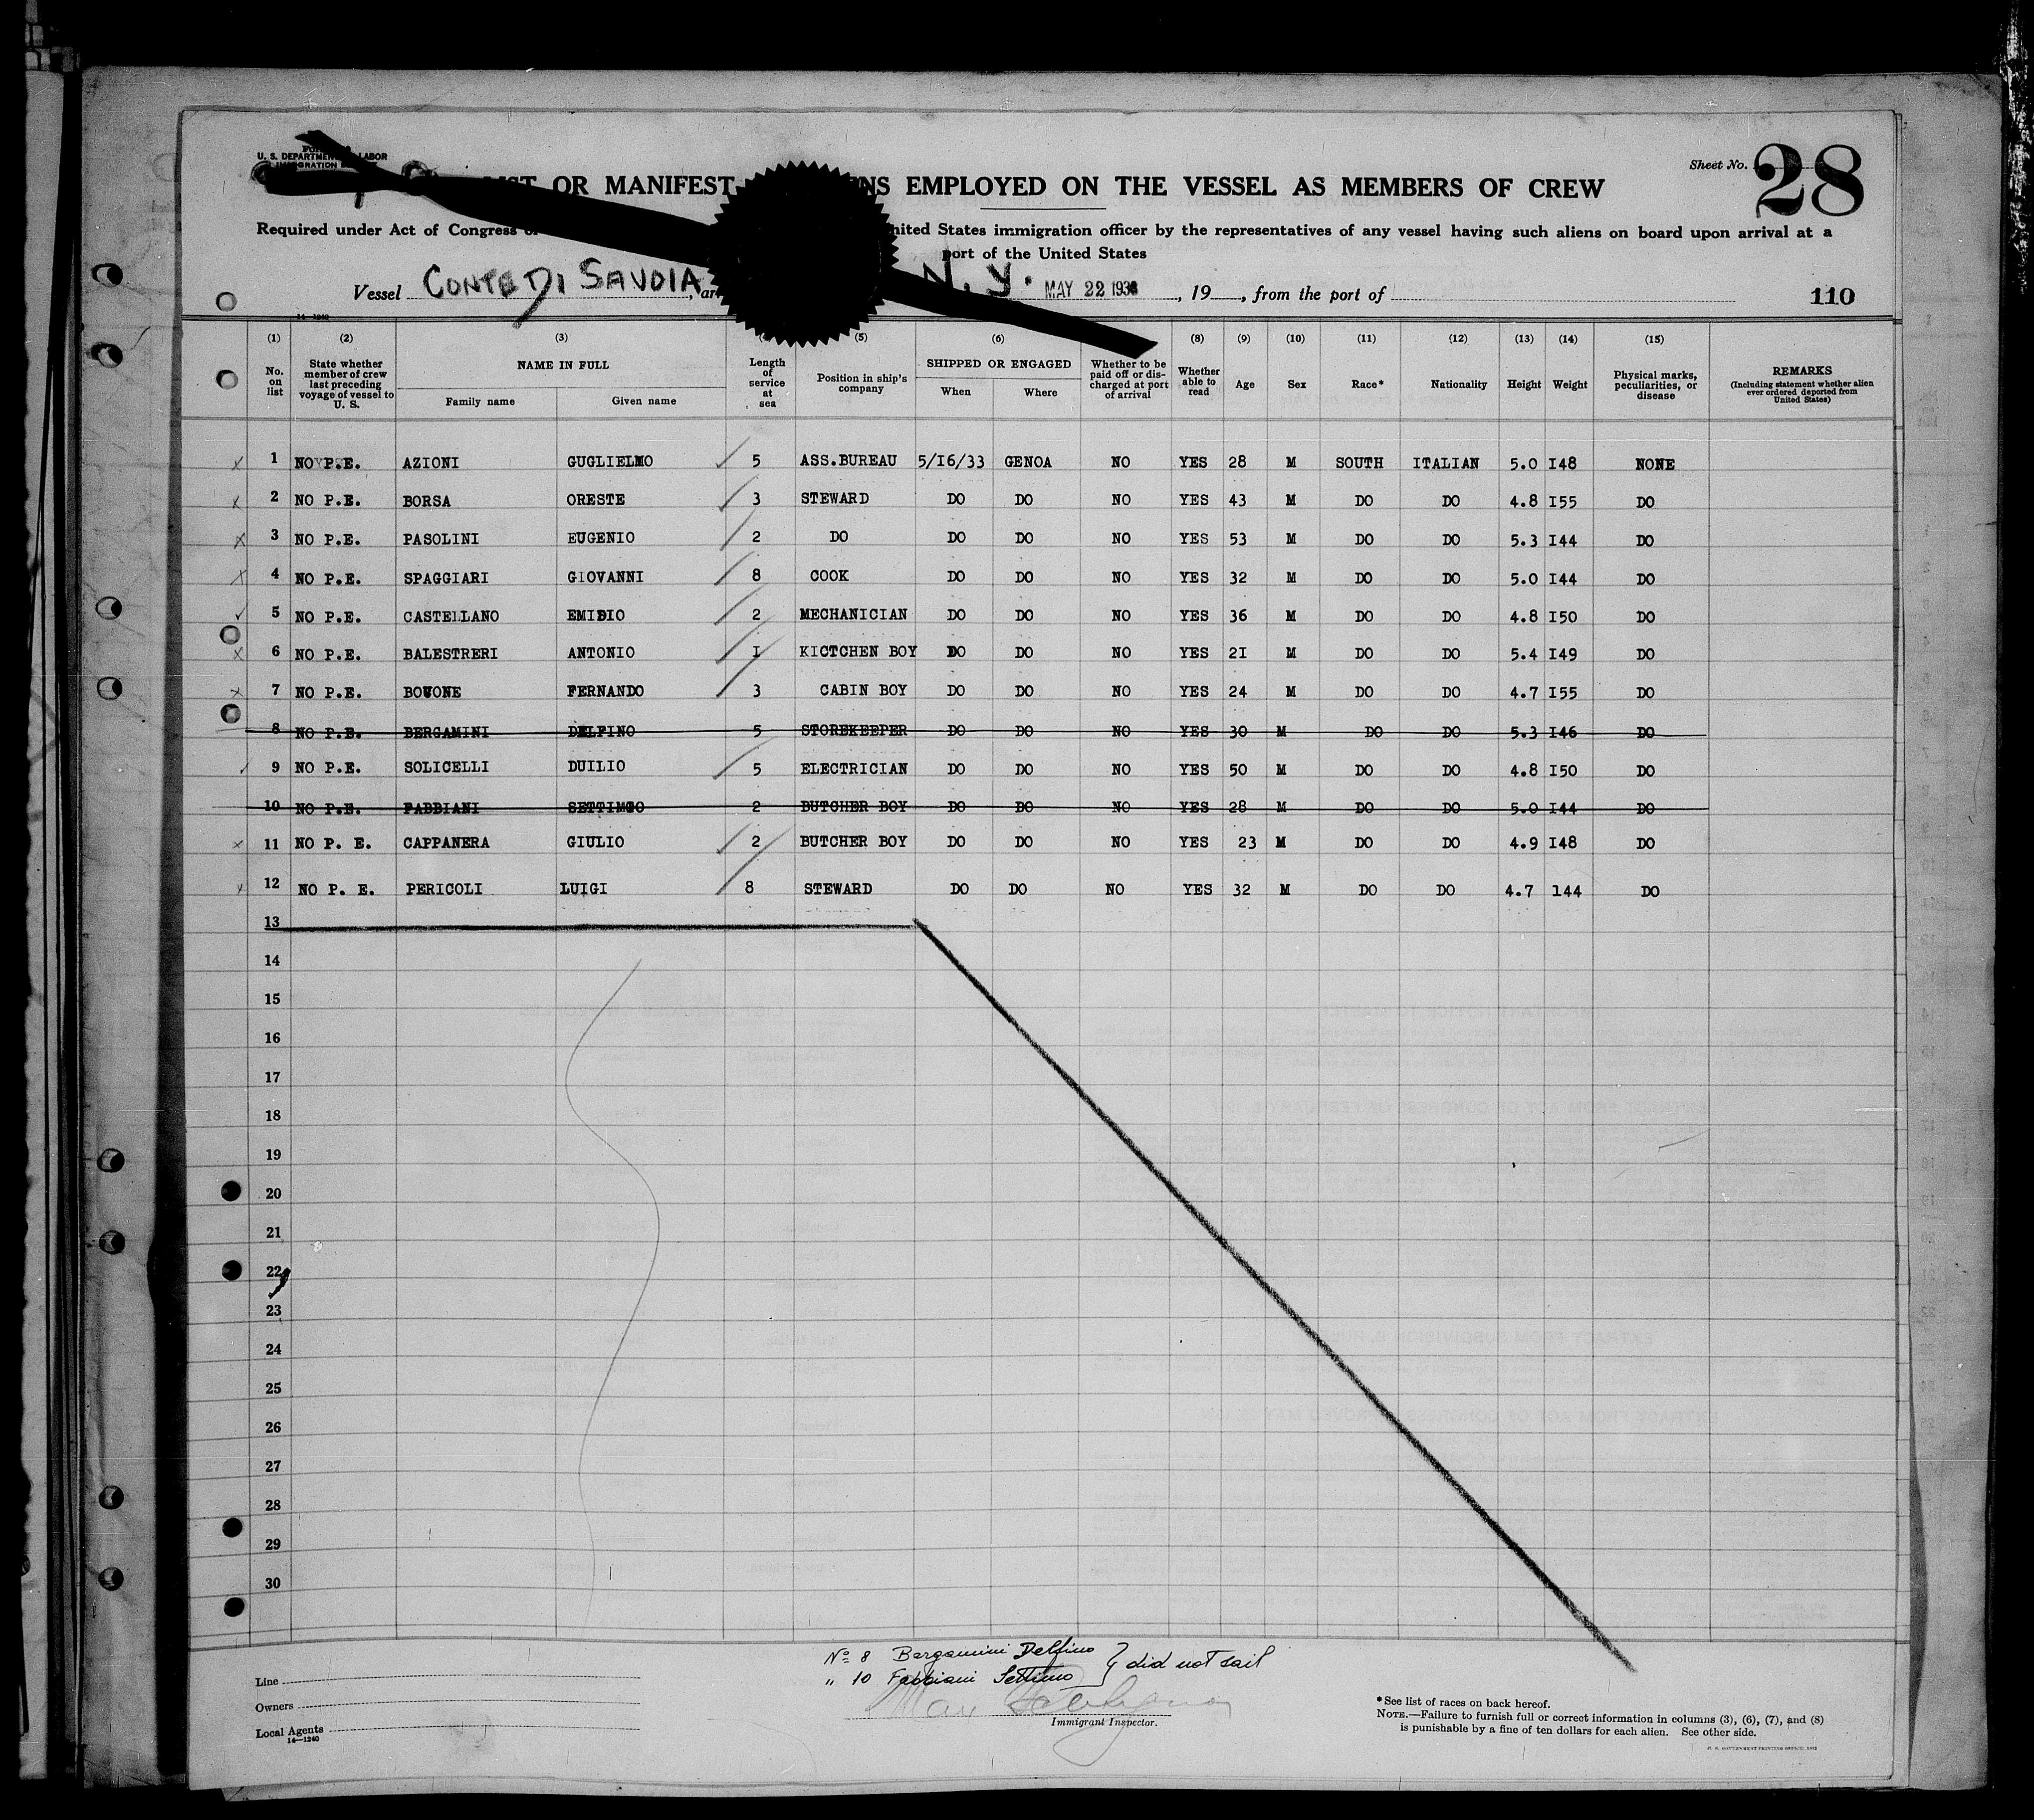 U. S. DEPARTMENT LABOR
Sheet No. 28
LIST OR MANIFEST EMPLOYED ON THE VESSEL AS MEMBERS OF CREW
Required under Act of Congress United States immigration officer by the representatives of any vessel having such aliens on board upon arrival at a
port of the United States
Vessel CONTE DI SAVOIA, N. Y. MAY 22 193 , 19 , from the port of 110
14—1240
(1) (2) (3) (5) (6) (8) (9) (10) (11) (12) (13) (14) (15)
No. on list State whether member of crew last preceding voyage of vessel to U. S. NAME IN FULL Family name Given name Length of service at sea Position in ship's company SHIPPED OR ENGAGED When Where Whether to be paid off or discharged at port of arrival Whether able to read Age Sex Race* Nationality Height Weight Physical marks, peculiarities, or disease REMARKS (Including statement whether alien ever ordered deported from United States)
1 NO P.E. AZIONI GUGLIELMO 5 ASS.BUREAU 5/16/33 GENOA NO YES 28 M SOUTH ITALIAN 5.0 I48 NONE
2 NO P.E. BORSA ORESTE 3 STEWARD DO DO NO YES 43 M DO DO 4.8 I55 DO
3 NO P.E. PASOLINI EUGENIO 2 DO DO DO NO YES 53 M DO DO 5.3 I44 DO
4 NO P.E. SPAGGIARI GIOVANNI 8 COOK DO DO NO YES 32 M DO DO 5.0 I44 DO
5 NO P.E. CASTELLANO EMIDIO 2 MECHANICIAN DO DO NO YES 36 M DO DO 4.8 I50 DO
6 NO P.E. BALESTRERI ANTONIO I KICTCHEN BOY DO DO NO YES 2I M DO DO 5.4 I49 DO
7 NO P.E. BOVONE FERNANDO 3 CABIN BOY DO DO NO YES 24 M DO DO 4.7 I55 DO
8 NO P.E. BERGAMINI DELFINO 5 STOREKEEPER DO DO NO YES 30 M DO DO 5.3 I46 DO
9 NO P.E. SOLICELLI DUILIO 5 ELECTRICIAN DO DO NO YES 50 M DO DO 4.8 I50 DO
10 NO P.E. FABBIANI SETTIMGO 2 BUTCHER BOY DO DO NO YES 28 M DO DO 5.0 I44 DO
11 NO P. E. CAPPANERA GIULIO 2 BUTCHER BOY DO DO NO YES 23 M DO DO 4.9 I48 DO
12 NO P. E. PERICOLI LUIGI 8 STEWARD DO DO NO YES 32 M DO DO 4.7 144 DO
13
14
15
16
17
18
19
20
21
22
23
24
25
26
27
28
29
30
No 8 Bergamini Delfino } did not sail
" 10 Fabbiani Settimo
Line
Owners
Local Agents
14—1240
Immigrant Inspector.
*See list of races on back hereof.
NOTE.—Failure to furnish full or correct information in columns (3), (6), (7), and (8)
is punishable by a fine of ten dollars for each alien. See other side.